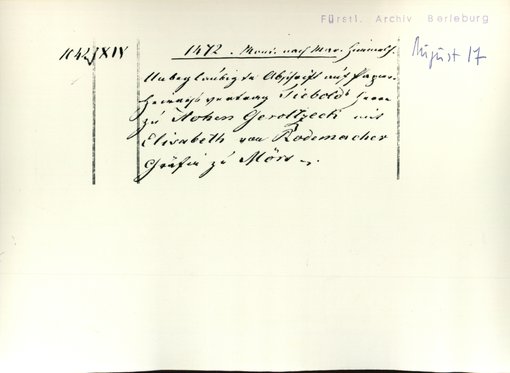 Fürstl. Archiv Berleburg
August 17
1042/XIV
1472. Mont. nach Mar. Himmelf.
Unbeglaubigte Abschrift auf Papier.
Heirathsvertrag Diebolds Herrn
zu Hohen Geroltzeck mit
Elisabeth von Rodemacher
Gräfin zu Mörs